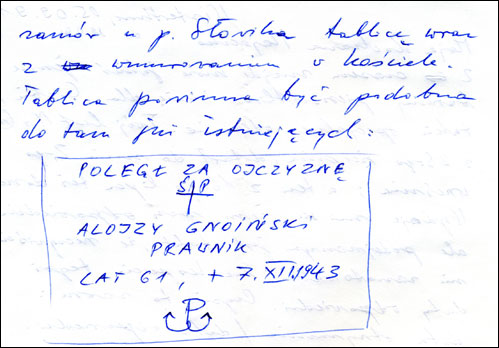 zamów u p. Słovika tablicę wraz
z wmurowaniem w kościele.
Tablica powinna być podobna
do tam już istniejących:
POLEGŁ ZA OJCZYZNĘ
Ś P
ALOJZY GNOIŃSKI
PRAWNIK
LAT 61, + 7.XII.1943
PW